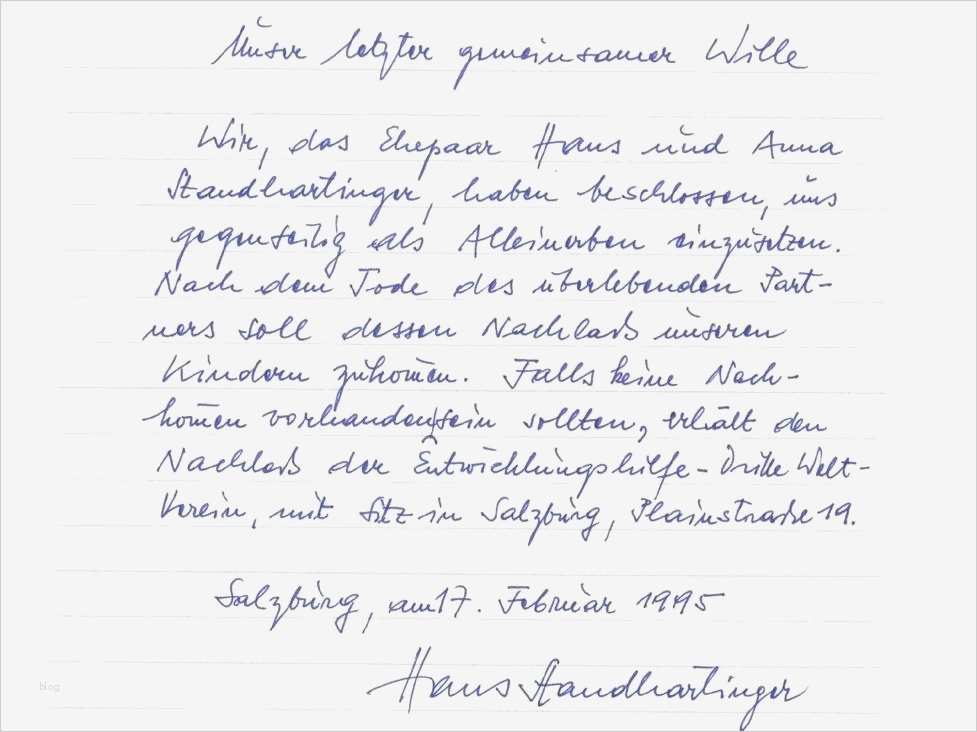 Unser letzter gemeinsamer Wille
Wir, das Ehepaar Hans und Anna
Standhartinger, haben beschlossen, uns
gegenseitig als Alleinerben einzusetzen.
Nach dem Tode des überlebenden Part-
ners soll dessen Nachlaß unseren
Kindern zukom̄en. Falls keine Nach-
kom̄en vorhanden sein sollten, erhält den
Nachlaß der Entwicklungshilfe-Dritte Welt-
Verein, mit Sitz in Salzburg, Plainstraße 19.
Salzburg, am 17. Februar 1995
Hans Standhartinger
blog